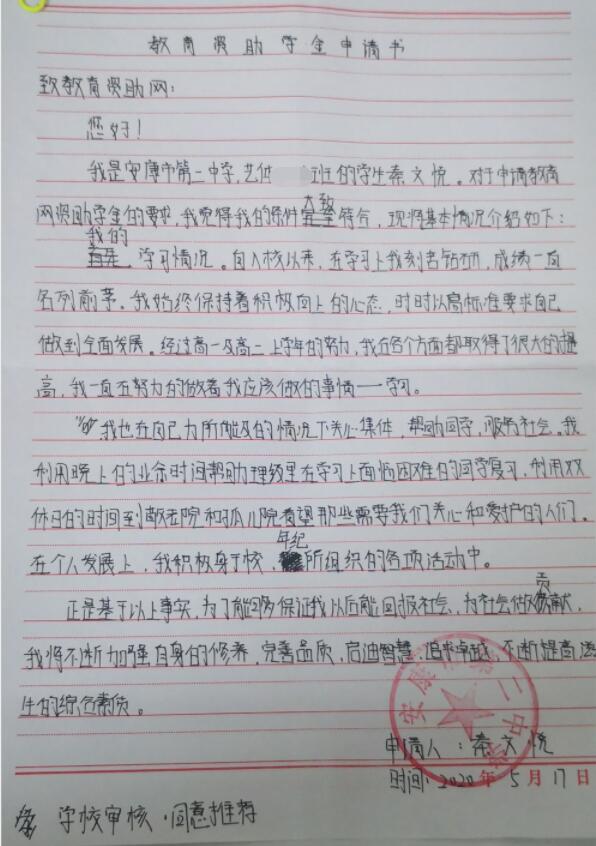 教育资助学金申请书
致教育资助网：
您好！
我是安康市第二中学，艺体 班的学生秦文悦。对于申请教育
网资助学金的要求，我觉得我的条件大致符合，现将基本情况介绍如下：
我的学习情况。自入校以来，在学习上我刻苦钻研，成绩一直
名列前茅。我始终保持着积极向上的心态，时时以高标准要求自己
做到全面发展。经过高一及高二上学年的努力，我在各个方面都取得了很大的提
高，我一直在努力的做着我应该做的事情——学习。
我也在自己力所能及的情况下关心集体，帮助同学，服务社会。我
利用晚上的业余时间帮助理级里在学习上面临困难的同学复习，利用双
休日的时间到敬老院和孤儿院看望那些需要我们关心和爱护的人们。
在个人发展上，我积极身于校，年纪所组织的各项活动中。
正是基于以上事实，为了能够保证我以后能回报社会，为社会做贡献，
我将不断加强自身的修养，完善品质，启迪智慧，追求卓越，不断提高
生的综合素质。
安康市第二中学
申请人：秦文悦
时间：2020年5月17日
学校审核：同意推荐